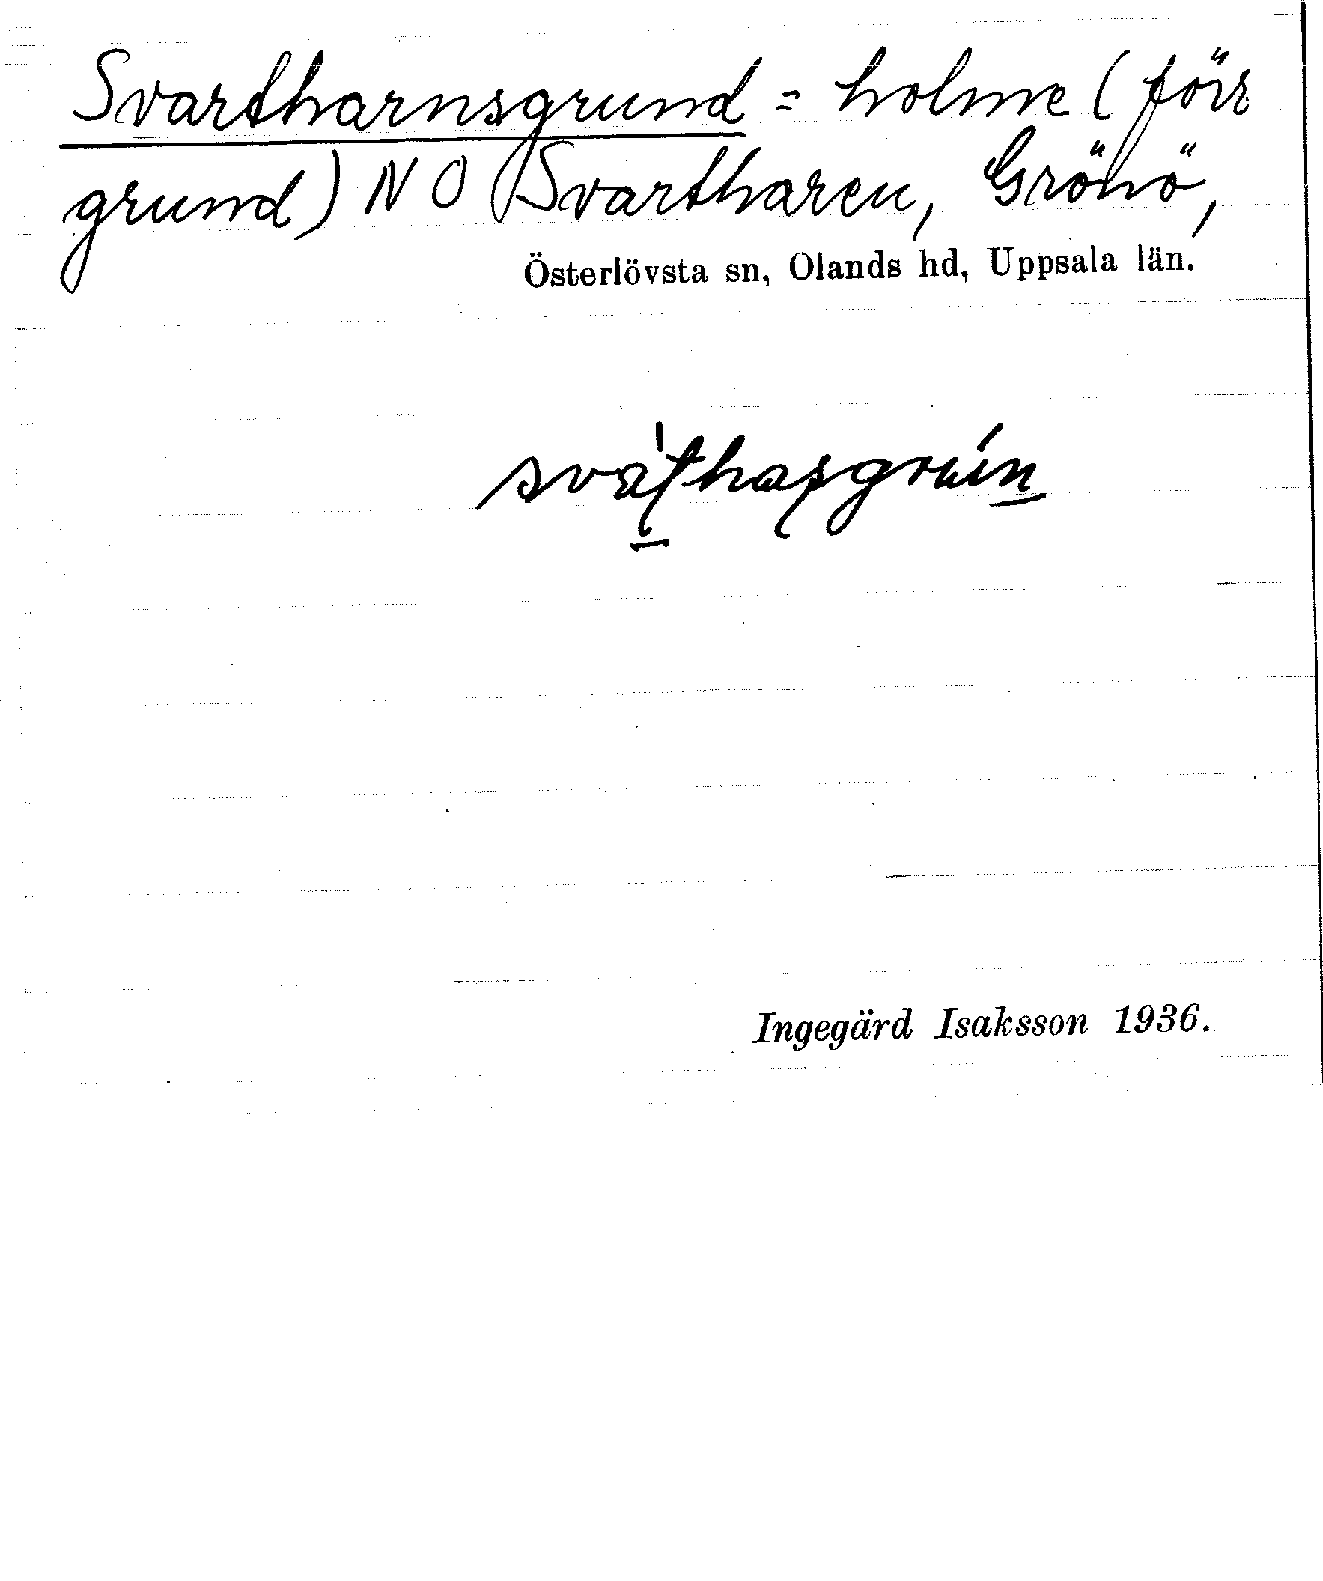 Svartharnsgrund = holme (förr
grund) NO Svartharen, Grönö,
Österlövsta sn, Olands hd, Uppsala län.
Ingegärd Isaksson 1936.